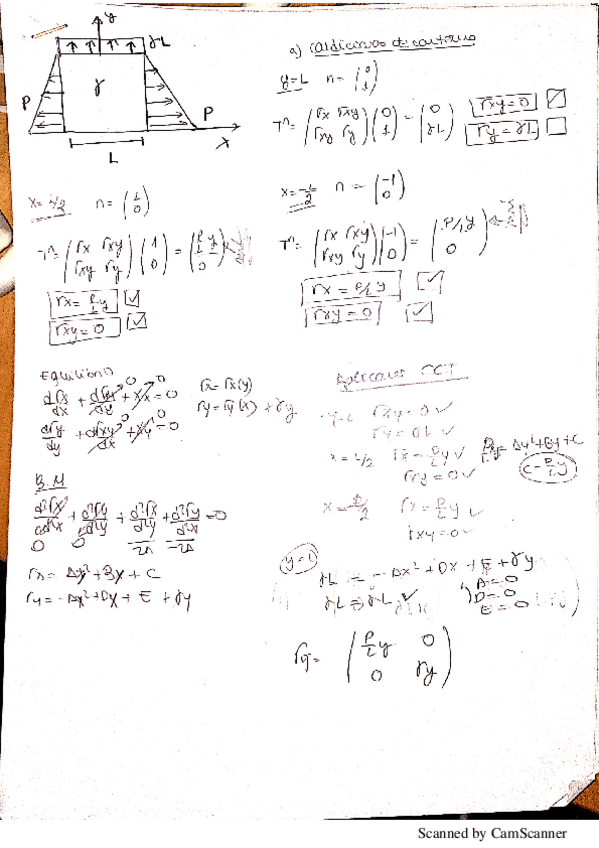 y
γL
γ
P
P
x
L
a) Condiciones de contorno
y=L n = (0 1)
Tⁿ= (σx σxy σxy σy) (0 1) = (0 γL)
σxy = 0
σy = γL
x = L/2 n = (1 0)
Tⁿ = (σx σxy σxy σy) (1 0) = (P/L y 0)
σx = P/L y
σxy = 0
x = -L/2 n = (-1 0)
Tⁿ = (σx σxy σxy σy) (-1 0) = (P/L y 0)
σx = P/L y
σxy = 0
Equilibrio
dσx/dx + dσxy/dy + Xx = 0
dσy/dy + dσxy/dx + Xy = 0
σx = σx(y)
σy = σy(x) + γy
B.M
d²σx/d²x + d²σy/d²y + d²σx/d²y + d²σy/d²x = 0
0 0 2A -2A
σx = Ay² + By + C
σy = -Ax² + Dx + E + γy
Aplicamos CCT
σxy = 0 ✓
x = L/2 σx = P/L y ✓
σxy = 0 ✓
σx = Ay² + By + C
x = -L/2 σx = P/L y ✓
σxy = 0 ✓
y = L
γL = -Ax² + Dx + E + γy
γL = γL ✓
A = 0
D = 0
E = 0
σij = (P/L y 0 0 γy)
Scanned by CamScanner